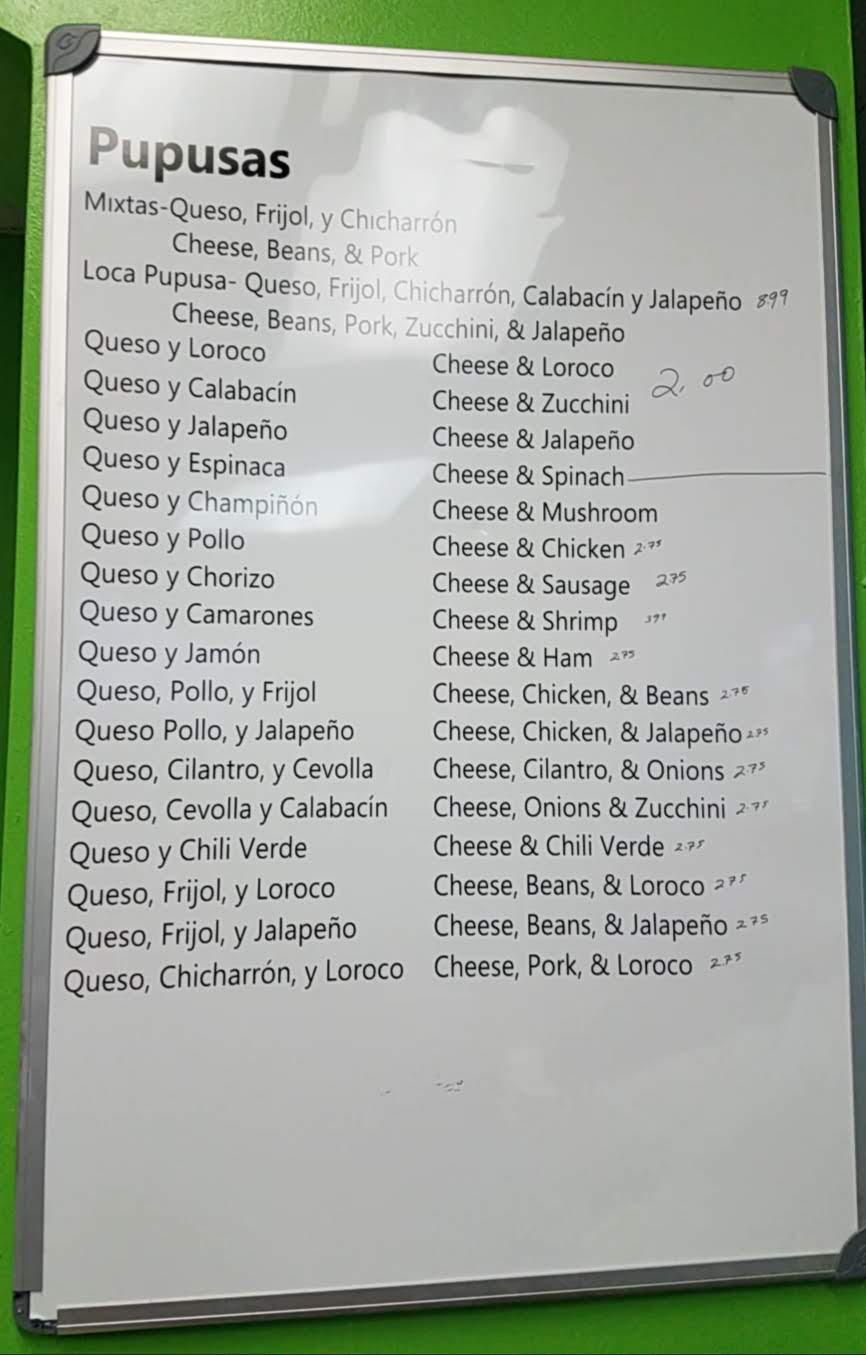 Pupusas
Mixtas-Queso, Frijol, y Chicharrón
Cheese, Beans, & Pork
Loca Pupusa- Queso, Frijol, Chicharrón, Calabacín y Jalapeño 8.99
Cheese, Beans, Pork, Zucchini, & Jalapeño
Queso y Loroco Cheese & Loroco
2.00
Queso y Calabacín Cheese & Zucchini
Queso y Jalapeño Cheese & Jalapeño
Queso y Espinaca Cheese & Spinach
Queso y Champiñón Cheese & Mushroom
Queso y Pollo Cheese & Chicken 2.75
Queso y Chorizo Cheese & Sausage 2.75
Queso y Camarones Cheese & Shrimp 3.99
Queso y Jamón Cheese & Ham 2.75
Queso, Pollo, y Frijol Cheese, Chicken, & Beans 2.75
Queso Pollo, y Jalapeño Cheese, Chicken, & Jalapeño 2.75
Queso, Cilantro, y Cevolla Cheese, Cilantro, & Onions 2.75
Queso, Cevolla y Calabacín Cheese, Onions & Zucchini 2.75
Queso y Chili Verde Cheese & Chili Verde 2.75
Queso, Frijol, y Loroco Cheese, Beans, & Loroco 2.75
Queso, Frijol, y Jalapeño Cheese, Beans, & Jalapeño 2.75
Queso, Chicharrón, y Loroco Cheese, Pork, & Loroco 2.75